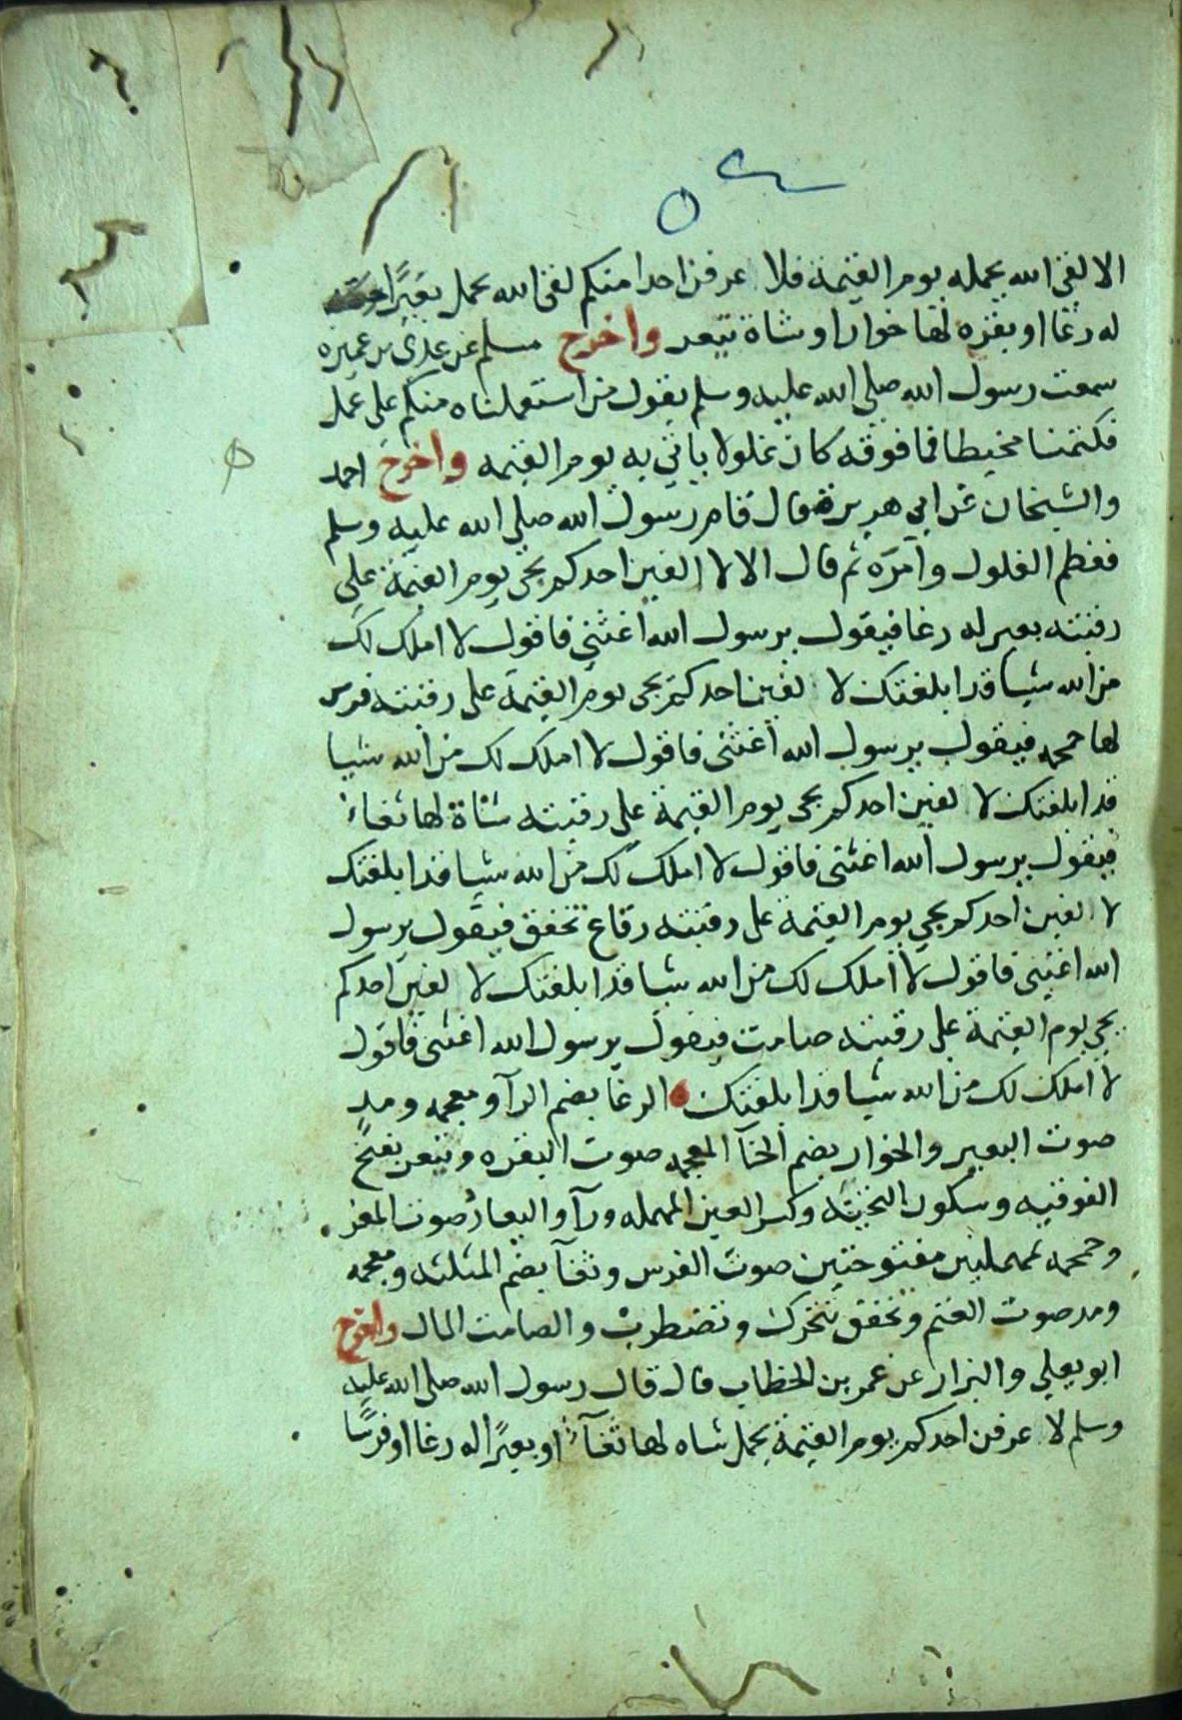 الا لقي الله يحمله يوم القيمة فلا عرفن احدا منكم لقى الله يحمل بعيرًا
له رغا او بقره لها خوار او شاة تيعر واخرج مسلم عن عدي بن عميره
سمعت رسول الله صلى الله عليه وسلم يقول من استعملناه منكم على عمل
فكتمنا مخيطا فما فوقه كان غلولا ياتي به يوم القيمه واخرج احمد
والشيخان عن ابي هريرة قال قام رسول الله صلى الله عليه وسلم
فعظم الغلول وامره ثم قال الا لا الفين احدكم يجى يوم القيمة على
رقبته بعير له رغا فيقول يرسول الله اغثنى فاقول لا املك لك
من الله شيا قد ابلغتك لا لفين احدكم يجى يوم القيمة على رقبته فرس
لها حمحمه فيقول يرسول الله اغثنى فاقول لا املك لك من الله شيا
قد ابلغتك لا لفين احدكم يجى يوم القيمة على رقبته شاة لها ثغاء
فيقول يرسول الله اغثنى فاقول لا املك لك من الله شيا قد ابلغتك
لا الفين احدكم يجي يوم القيمة على رقبته رقاع تخفق فيقول يرسول
الله اغثنى فاقول لا املك لك من الله شيا قد ابلغتك لا لفين احدكم
يجي يوم القيمة على رقبته صامت فيقول يرسول الله اغثنى فاقول
لا املك لك من الله شيا قد ابلغتك الرغا بضم الرآ ومعجمه ومد
صوت البعير والخوار بضم الخآ المعجمه صوت البقره وتيعر بفتح
الفوقيه وسكون التحتيه وكسر العين المهمله ورآ واليعار صوت المعز
وحمحمه بمهملتين مفتوحتين صوت الفرس وثغآ بضم المثلثه ومعجمه
ومد صوت الغنم وتخفق تتحرك وتضطرب والصامت المال واخرج
ابو يعلي والبزار عن عمر بن الخطاب قال قال رسول الله صلى الله عليه
وسلم لا عرفن احدكم يوم القيمة يحمل شاه لها ثغآء او بعيرًا له رغا او فرسًا